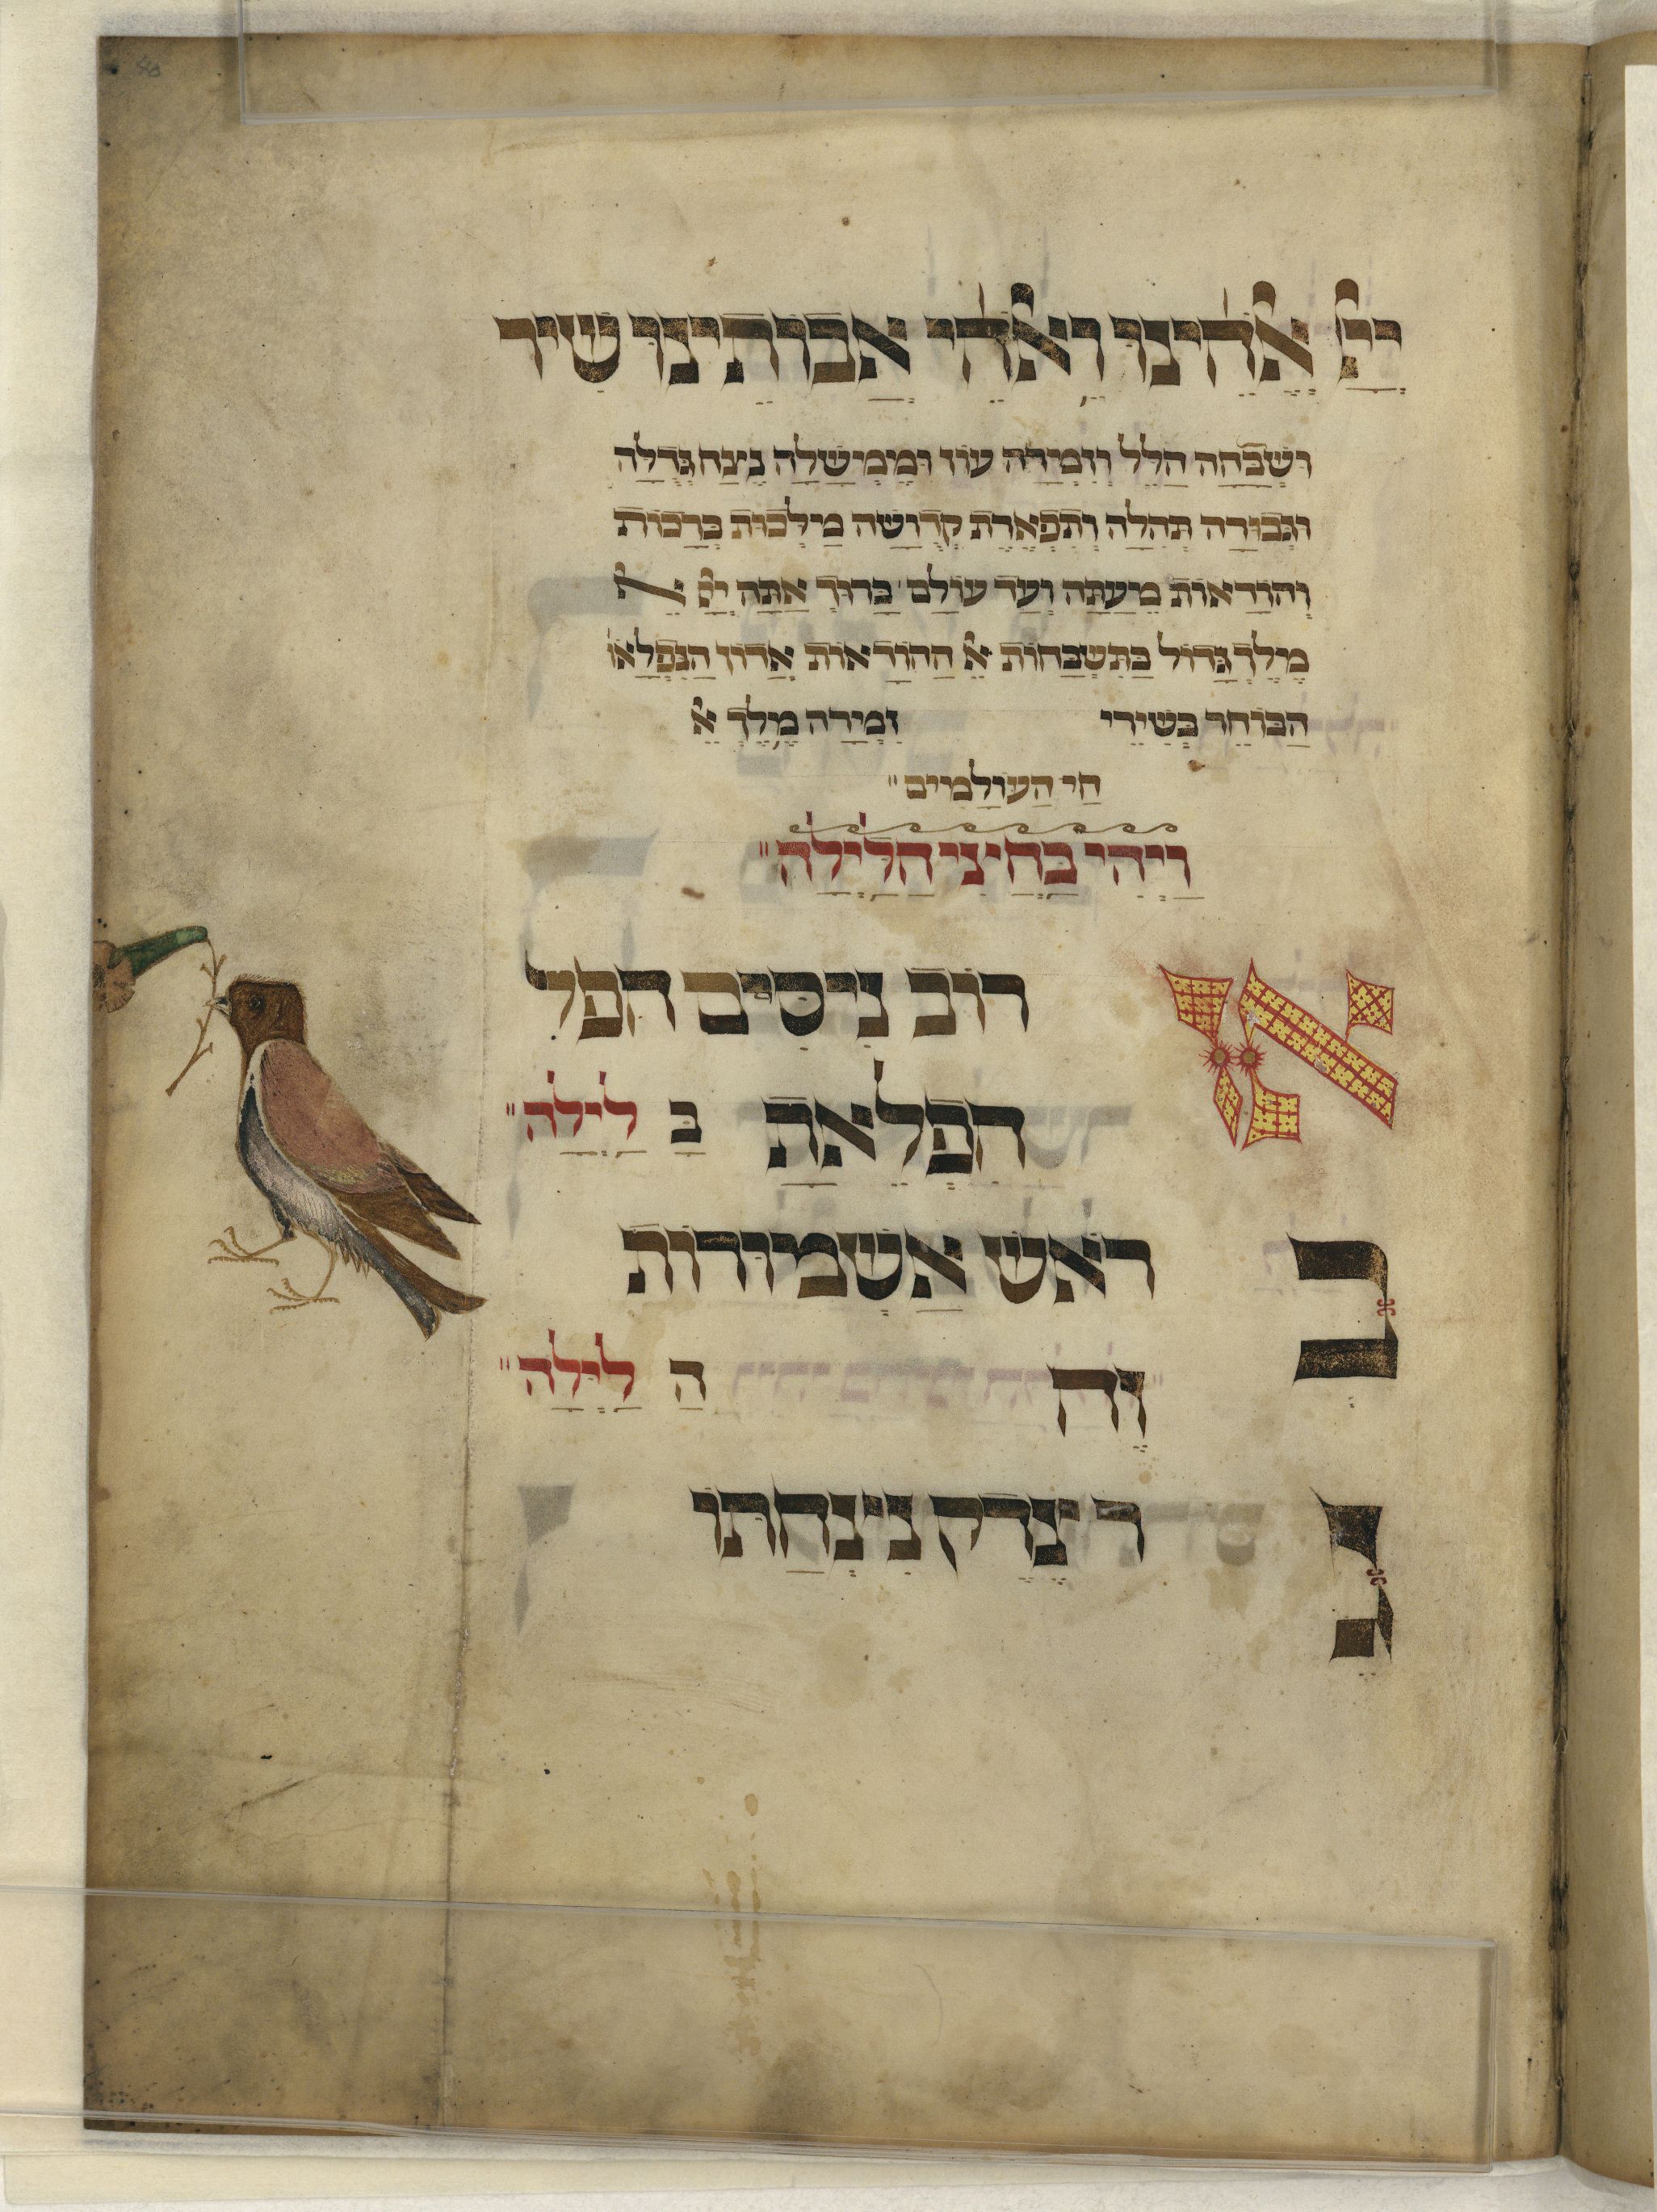 ייָ אֱלֹהֵינוּ וֵאלֹהֵי אֲבוֹתֵינוּ שִׁיר
וּשְׁבָחָה הַלֵל וְזִמְרָה עוֹז וּמֶמְשָׁלָה נֶצַח גְדֻלָה
וּגְבוּרָה תְהִלָה וְתִפְאֶרֶת קְדֻושָׁה מַלְכוּת בְּרָכוֹת
וְהוֹדָאוֹת מֵעַתָּה וְעַד עוֹלָם׃ בָּרוּךְ אַתָּה יְיָ אֵל
מֶלֶךְ גָדוֹל בַּתִשְׁבָּחוֹת אֵל הַהוֹדָאוֹת אֲדוֹן הַנִפְלָאוֹ
הַבּוֹחֵר בְּשִׁירֵי זִמְרָה מֶלֶךְ אֵל
חַי הָעוֹלָמִים״
וַיְהִי בַּחֲצִי הַלַיְלָה״
אָז רוֹב נִיסִים הפל
הִפְלֵאתָ בַּ לַיְלָה״
בְּ רֹאשׁ אַשְׁמוּרוֹת
זֶה הַ לַיְלָה״
גֵ ר צֶדֶק נִיצַחְתּוֹ